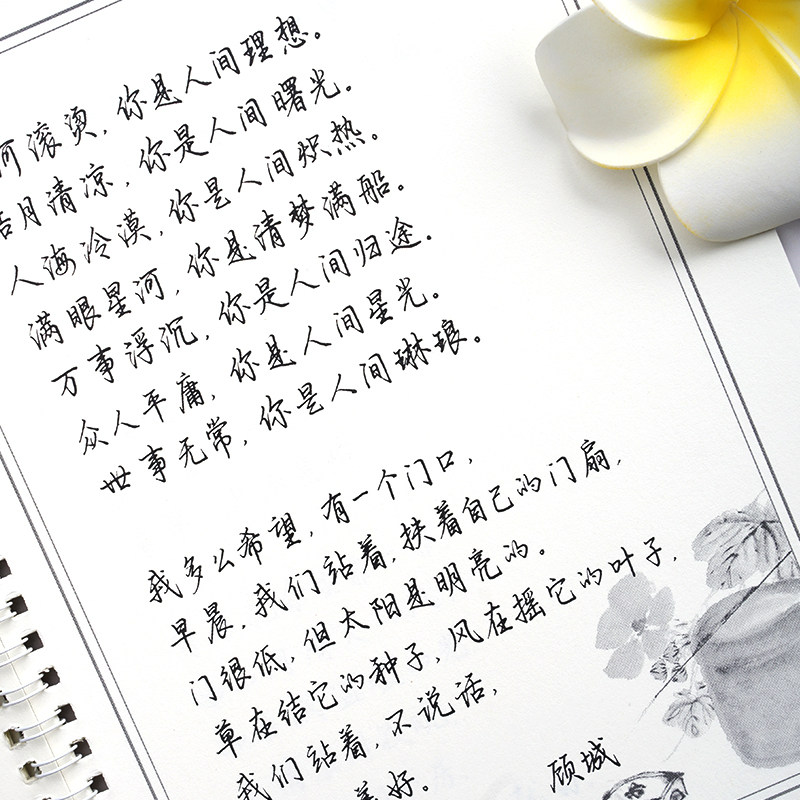 河滚烫，你是人间理想。
皓月清凉，你是人间曙光。
人海冷漠，你是人间炽热。
满眼星河，你是清梦满船。
万事浮沉，你是人间归途。
众人平庸，你是人间星光。
世事无常，你是人间琳琅。
我多么希望，有一个门口，
早晨，我们站着，扶着自己的门扇，
门很低，但太阳是明亮的。
草在结它的种子，风在摇它的叶子，
我们站着，不说话，
美好。
顾城